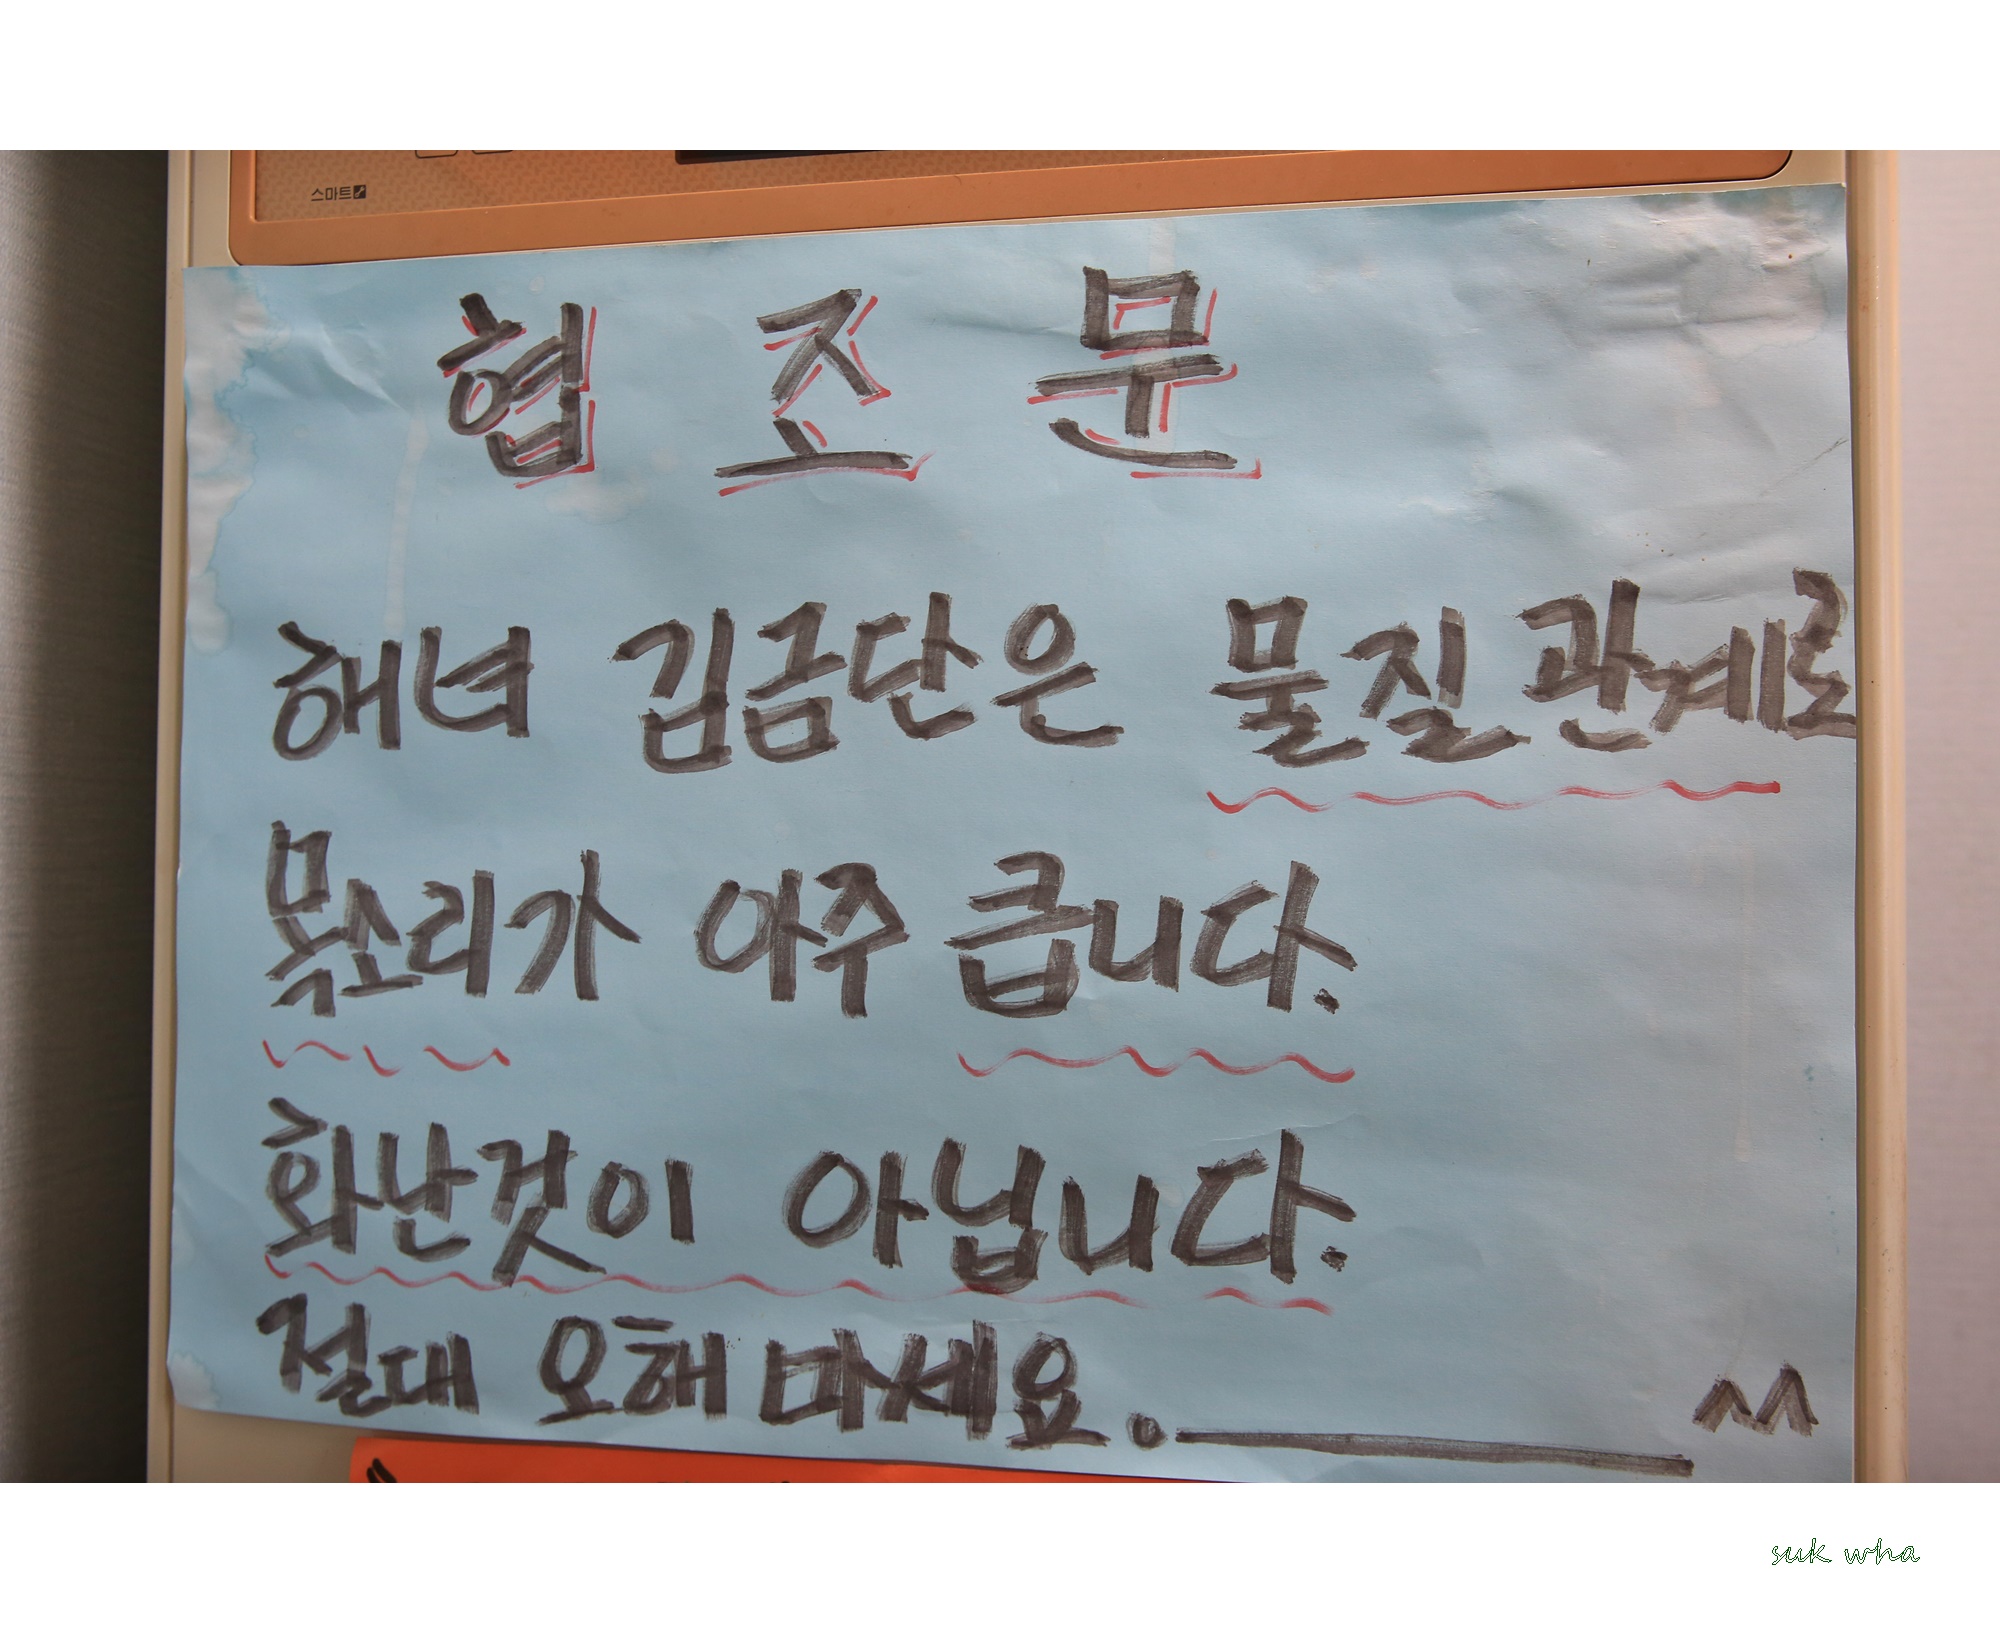 스마트
협 조 문
해녀 김금단은 물질 관계로
목소리가 아주 큽니다.
화난것이 아닙니다.
절대 오해 마세요. ^^
suk wha